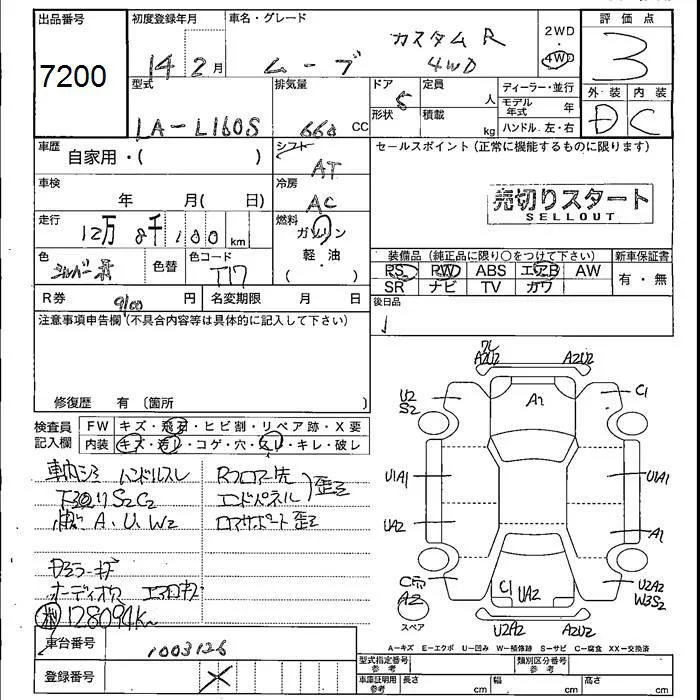 出品番号
7200
初度登録年月
14 2月
車名・グレード
カスタム R
ムーブ 4WD
2WD
4WD
評価点
3
外装 内装
D C
型式
LA-L160S
排気量
660 CC
ドア 5
形状
定員 人
積載 kg
ディーラー・並行
モデル年式 年
ハンドル.左・右
車歴
自家用・( )
シフト
AT
セールスポイント (正常に機能するものに限ります)
売切りスタート
SELLOUT
車検
年 月( 日)
冷房
AC
走行
12万 8千 100 km
燃料
ガソリン
軽・油
( )
色
シルバー
色替
色コード
T17
装備品 (純正品に限り○をつけて下さい)
新車保証書
PS PW ABS エアB AW
SR ナビ TV カワ
有・無
R券 9100 円
名変期限 月 日
後日品
注意事項申告欄 (不具合内容等は具体的に記入して下さい)
修復歴 有 (箇所 )
検査員記入欄
FW キズ・飛石・ヒビ割・リペア跡・X要
内装 キズ・汚レ・コゲ・穴・スレ・キレ・破レ
ハンドルスレ
S2C2
A.U.W2
Rフロア先
エンドパネル 歪ミ
ロアサポート歪ミ
128094K
A2U2 A2U2
A2
U2
S2
C1
U1A1 U1A1
UA2 A1
A2
スペア
C1 UA2
U2A2
W3S2
U2A2 A2U2
A-キズ E-エクボ U-凹み W-補修跡 S-サビ C-腐食 XX-交換済
車台番号
1003126
登録番号
型式指定番号 参考
類別区分番号 参考
車庫証明用 参考
長さ cm
幅 cm
高さ cm